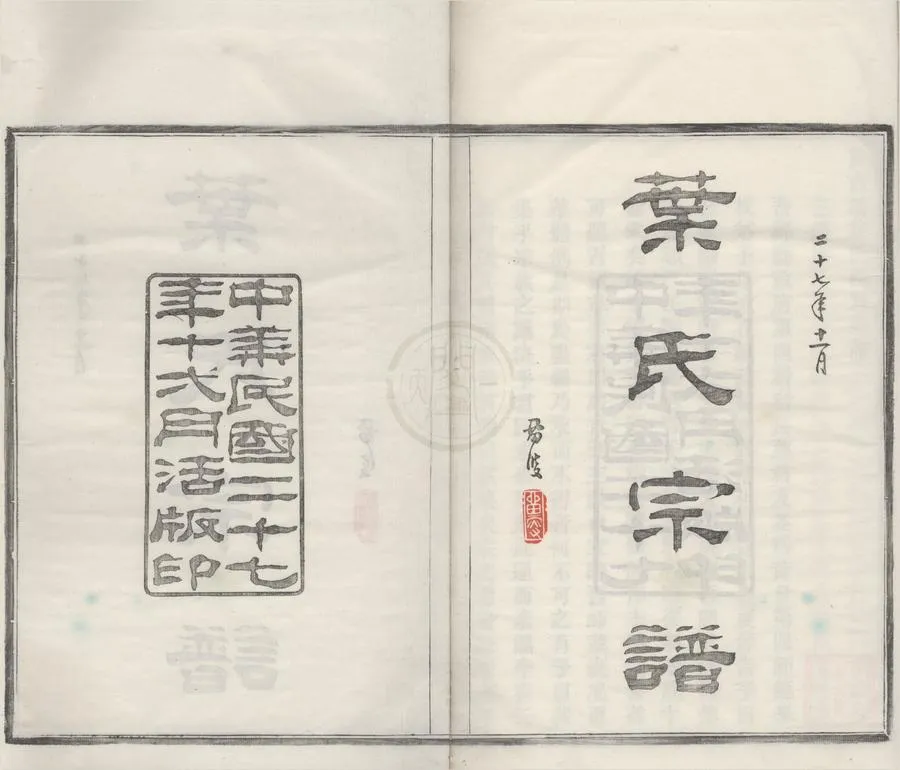 二十七年十一月
葉氏宗譜
中華民國二十七
年十弍月活版印